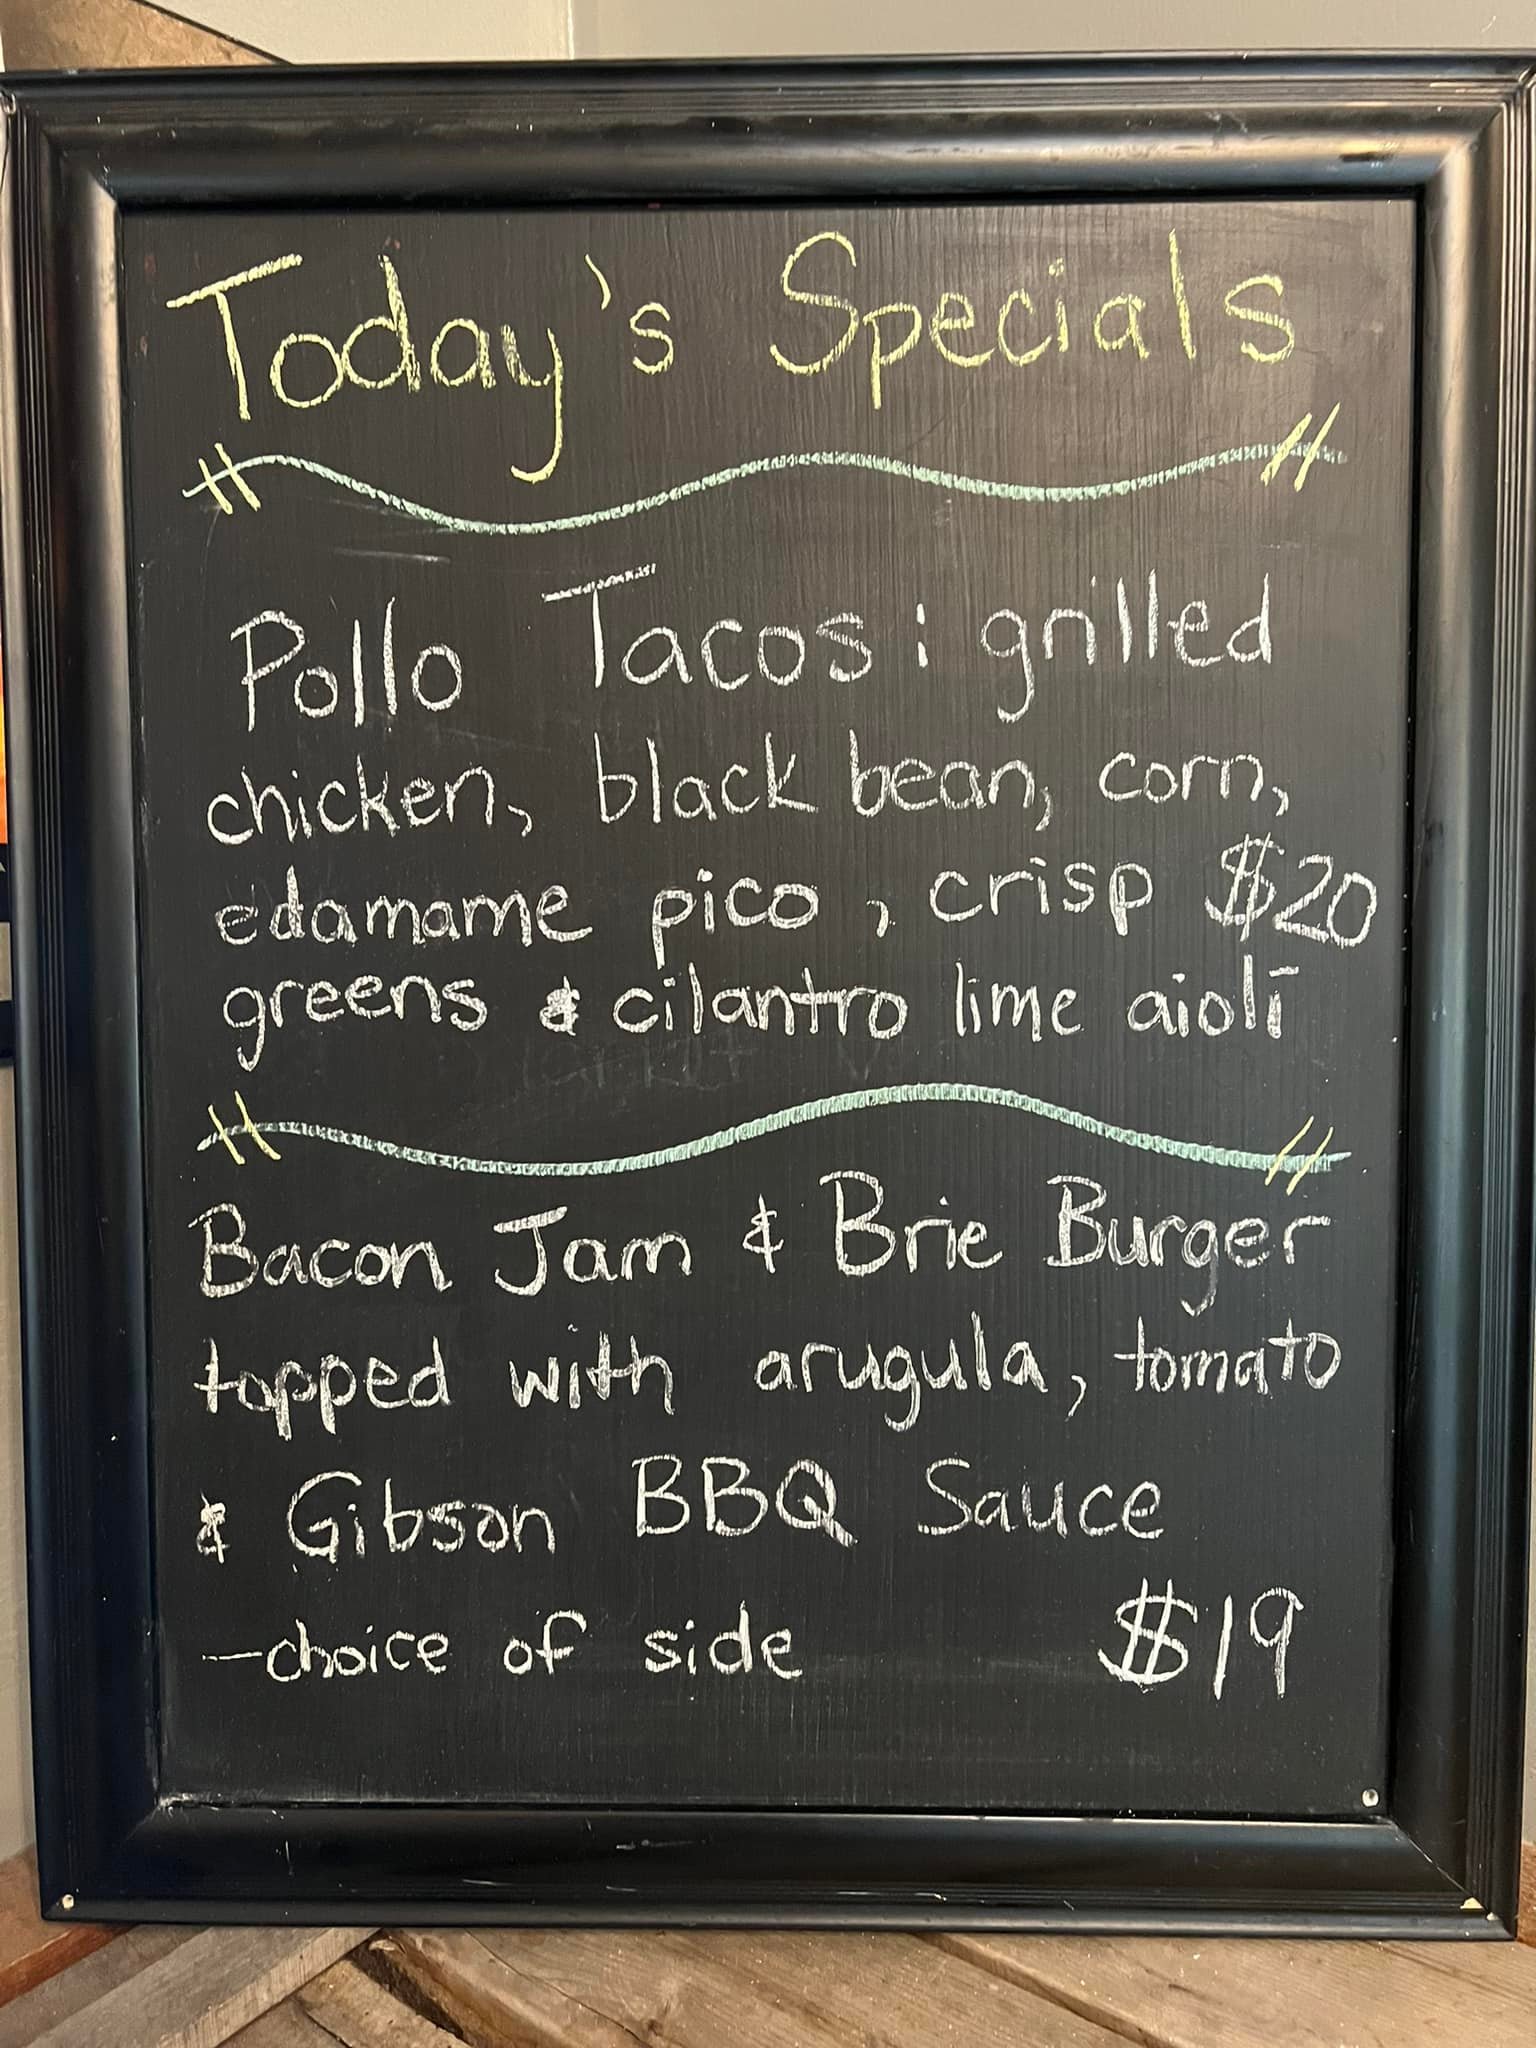 Today's Specials
Pollo Tacos: grilled
chicken, black bean, corn,
edamame pico, crisp $20
greens & cilantro lime aioli
Bacon Jam & Brie Burger
topped with arugula, tomato
& Gibson BBQ Sauce
-choice of side $19